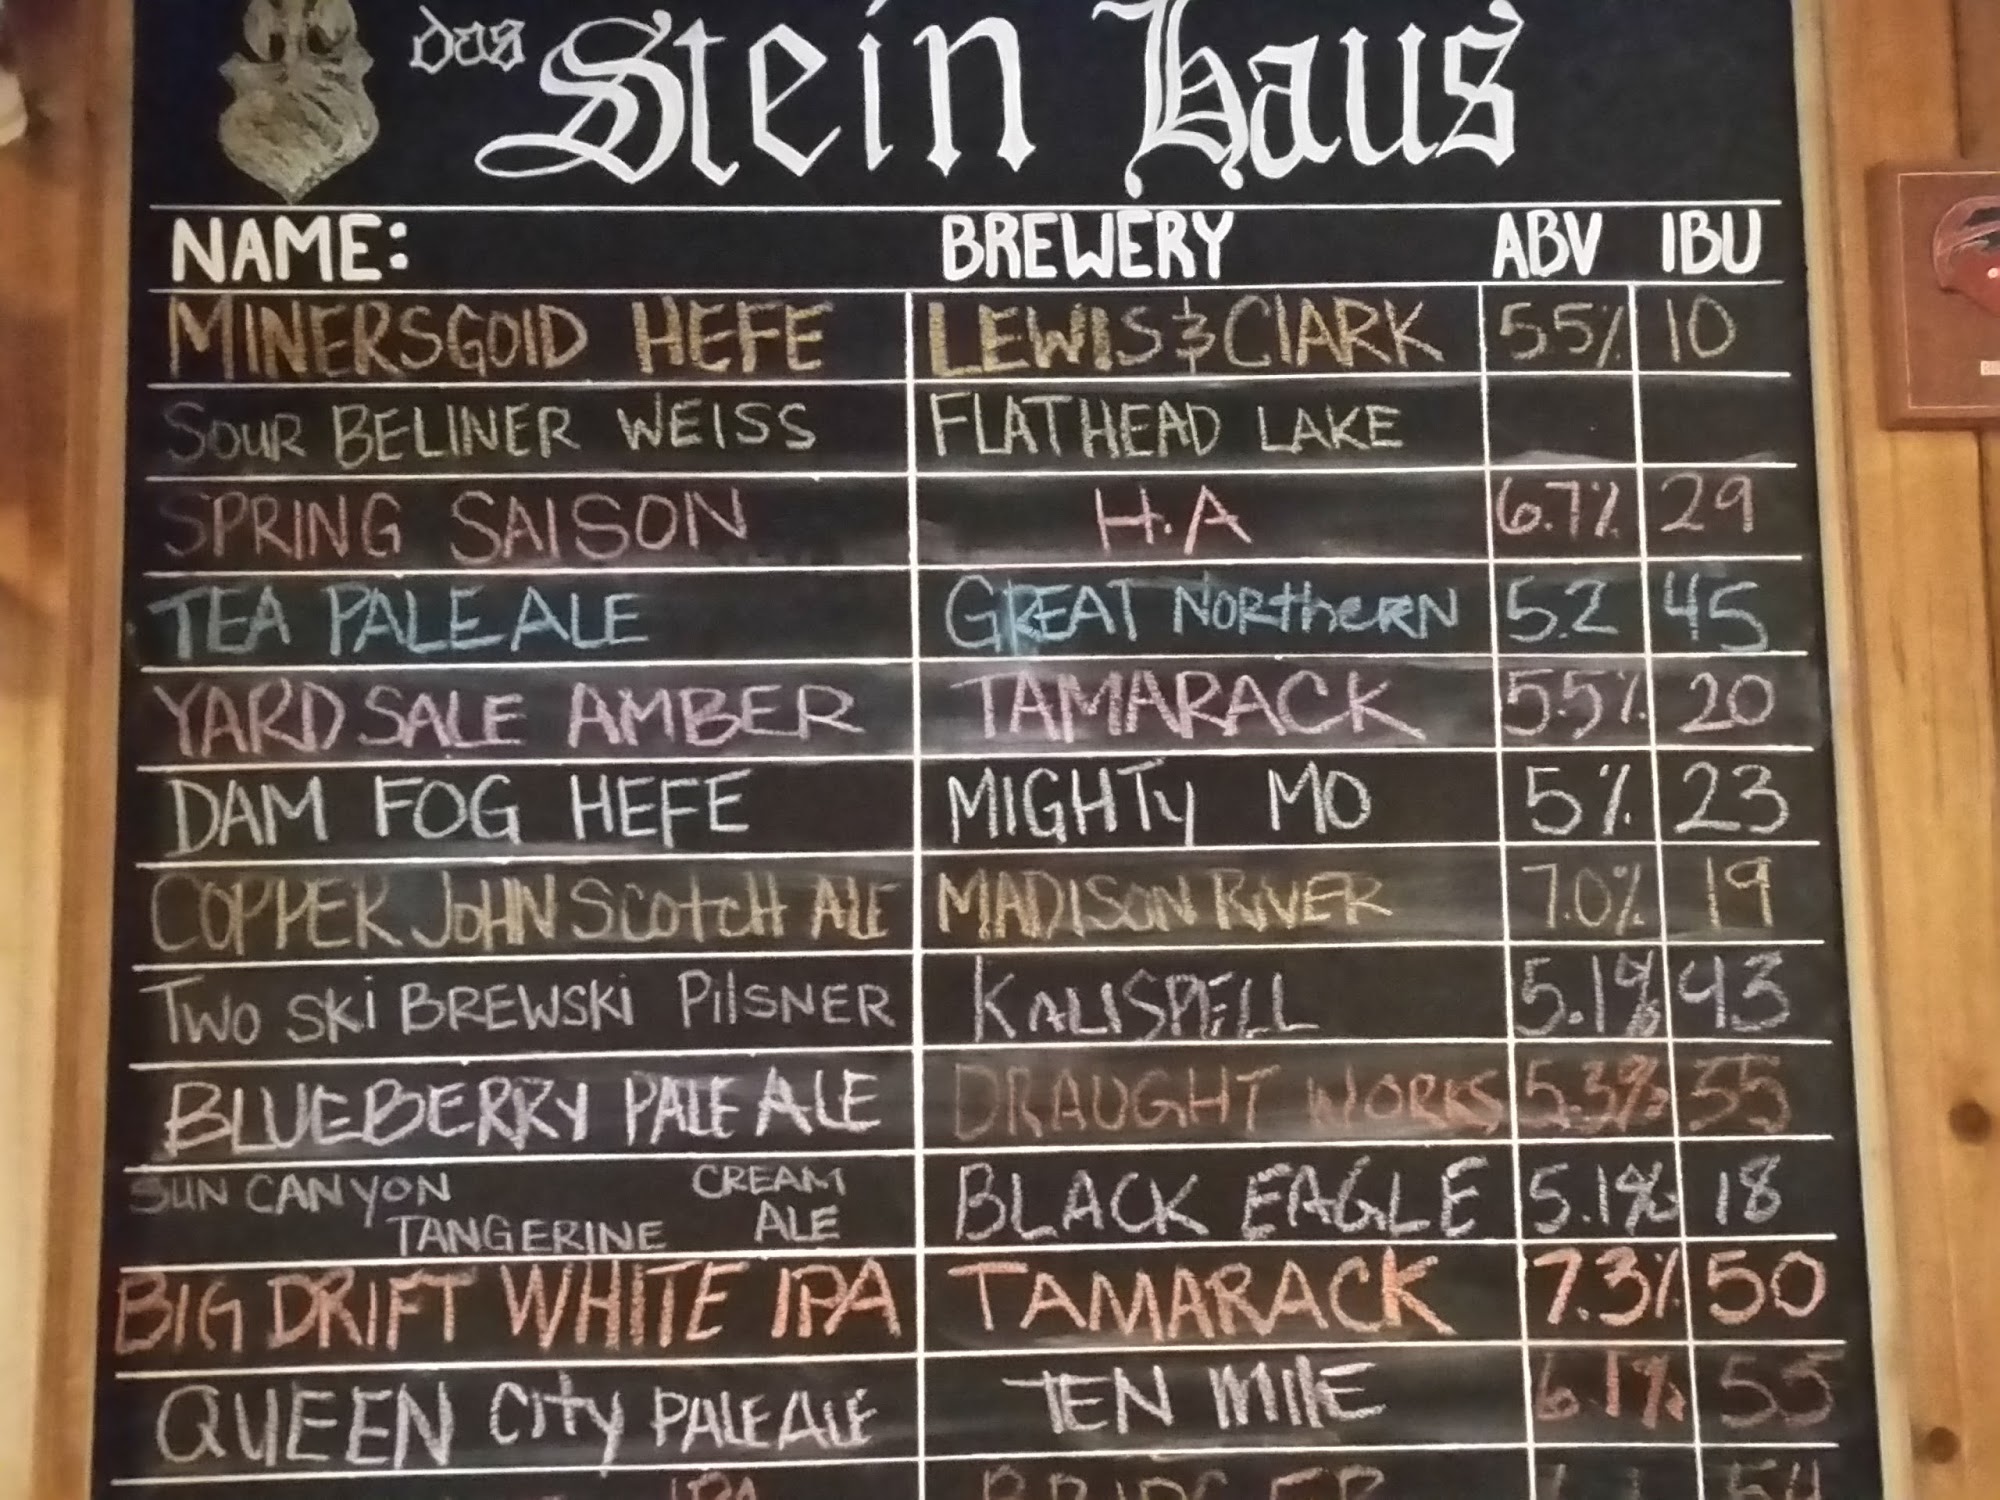 das Stein Haus
NAME: BREWERY ABV IBU
MINERSGOlD HEFE LEWIS & ClARK 5.5% 10
SOUR BELINER WEISS FLATHEAD LAKE
SPRING SAISON H.A 6.7% 29
TEA PALE ALE GREAT NORthERN 5.2 45
YARD SALE AMBER TAMARACK 5.5% 20
DAM FOG HEFE MIGHTy MO 5% 23
COPPER JOHN SCOtCH ALE MADISON RIVER 7.0% 19
TWO SKi BREWSKi PilSNER KALISPELL 5.1% 43
BLUEBERRY PALE ALE DRAUGHT WORKS 5.3% 55
SUN CANYON CREAM
TANGERINE ALE BLACK EAGLE 5.1% 18
BIG DRIFT WHITE IPA TAMARACK 7.3% 50
QUEEN City PALE ALE TEN MIlE 6.1% 55
IPA BRIDGER 54